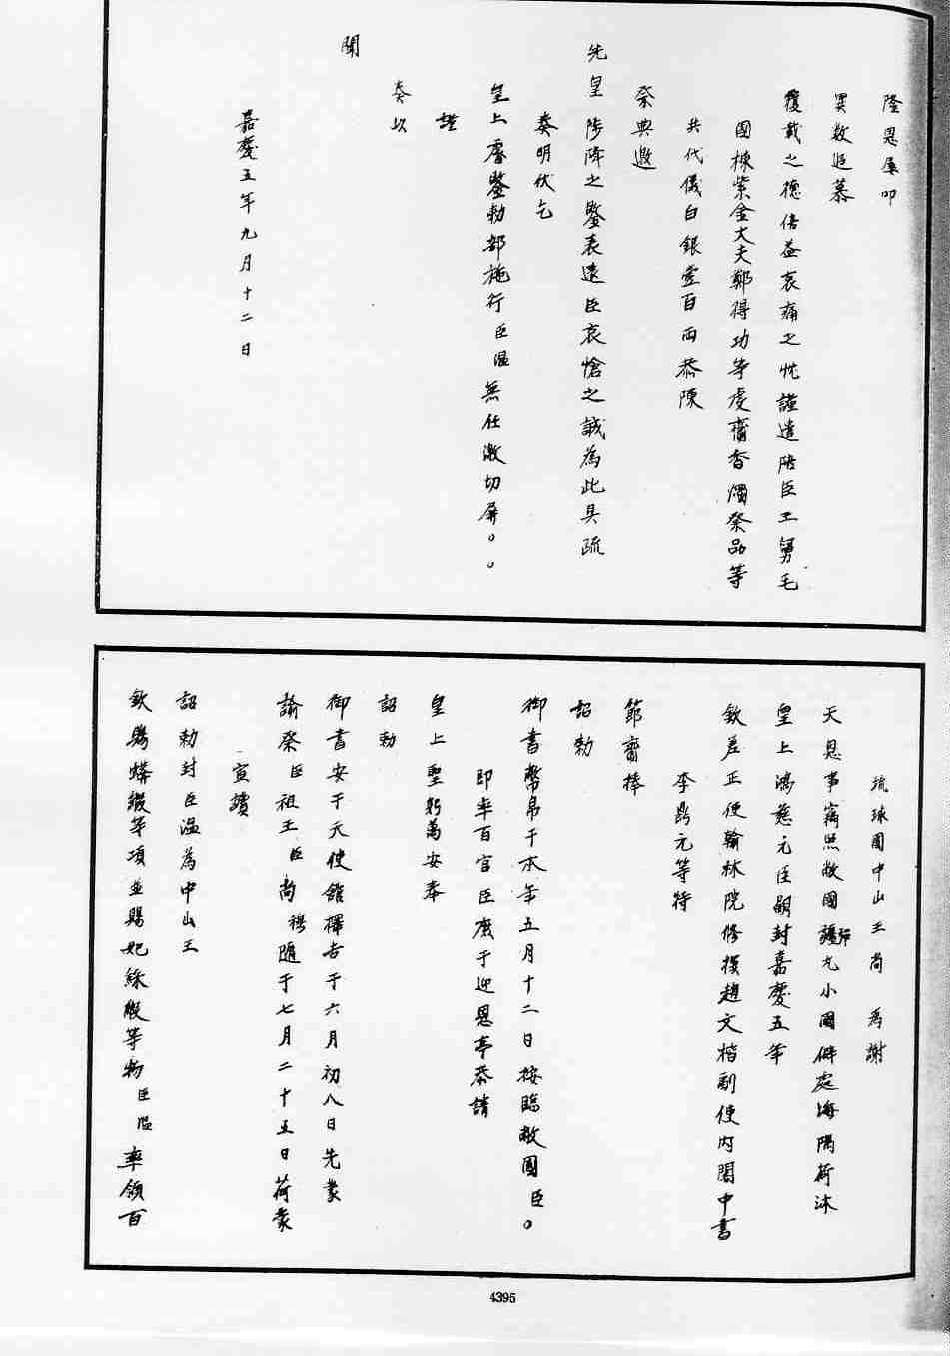 隆恩屢叩
異数追慕
覆載之德倍益哀痛之忱謹遣陪臣王舅毛
國棟紫金大夫鄭得功等虔齎香燭祭品等
共代儀白銀壹百両恭陳
祭典邀
先皇陟降之鑒表遠臣哀愴之誠為此具疏
奏明伏乞
皇上睿鑒勅部施行臣溫無任激切屏。。
謹
奏以
聞
嘉慶五年九月十二日
琉球國中山王尚　為謝
天恩事竊照敝國彈九小國僻處海隅荷沐
皇上鴻慈允臣嗣封嘉慶五年
欽差正使翰林院修撰趙文楷副使內閣中書
李鼎元等特
節齎捧
詔勅
御書幣帛于本年五月十二日按臨敝國臣。
即率百官臣庶于迎恩亭恭請
皇上聖躬萬安奉
詔勅
御書安于天使館擇吉于六月初八日先蒙
諭祭臣祖王臣尚穆隨于七月二十五日荷蒙
宣讀
詔勅封臣溫為中山王
欽賜蟒緞等項並賜妃綵緞等物臣溫率領百
4395